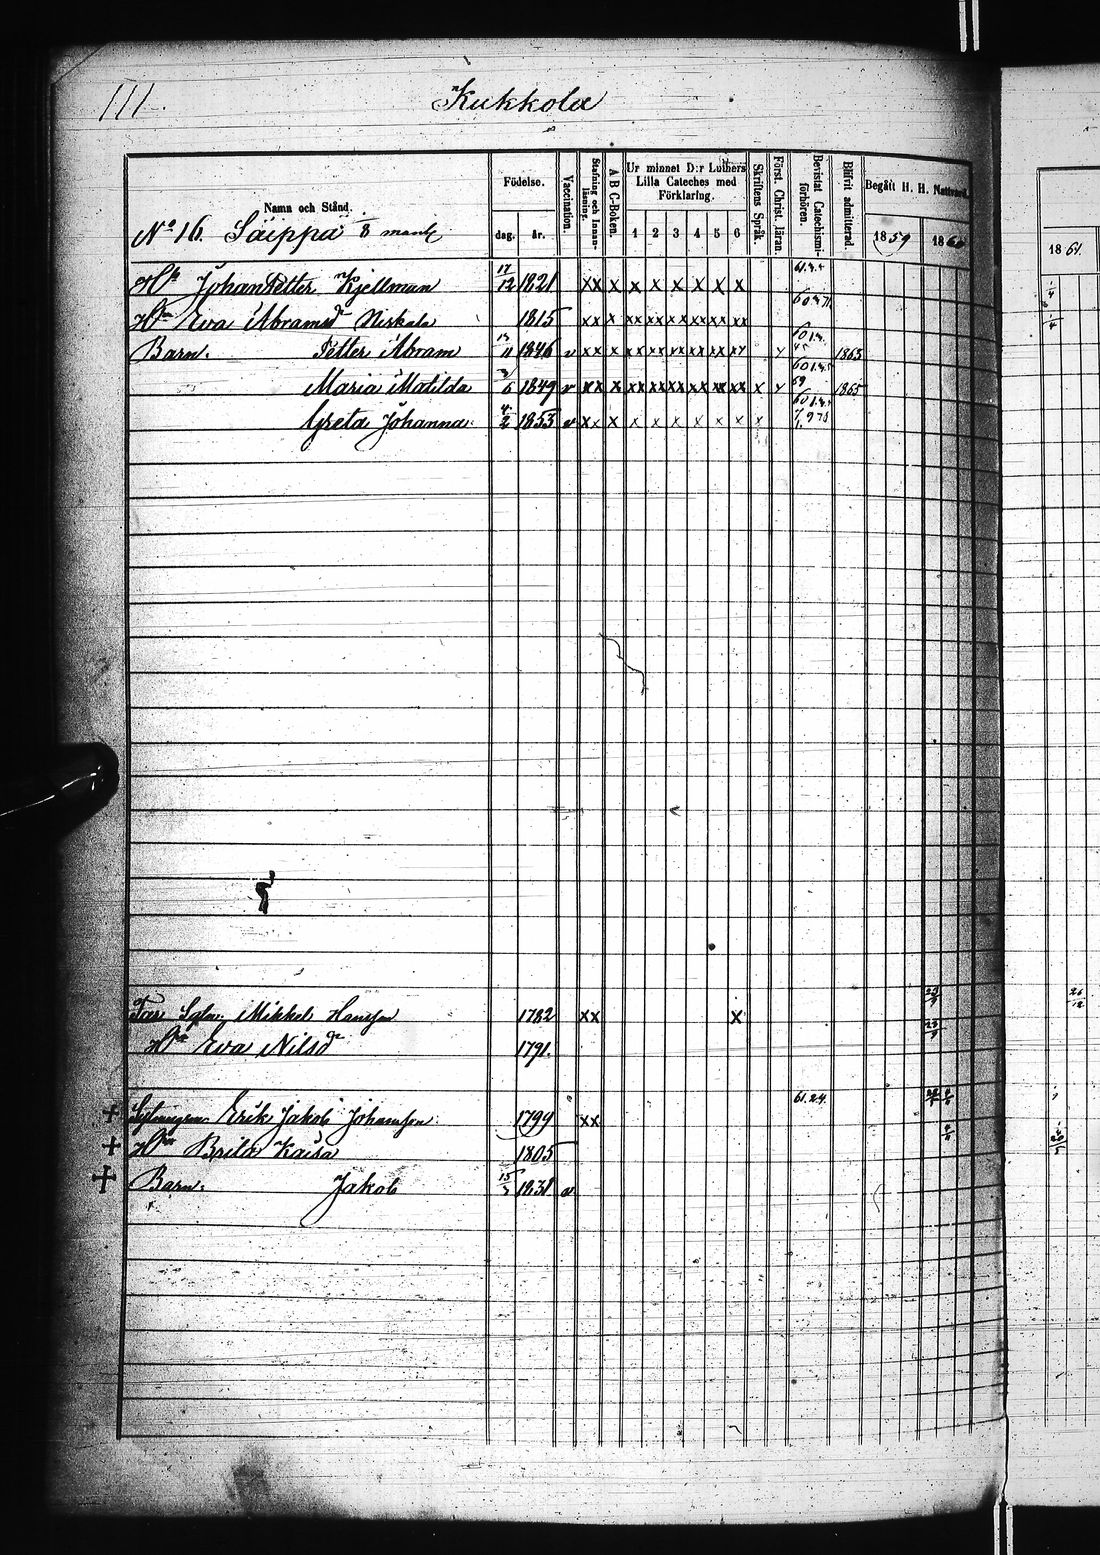 111.
Kukkola
Namn och Stånd.
Födelse.
dag.
år.
Vaccination.
Stafning och Innan-läsning.
A B C-Boken.
Ur minnet D:r Luthers
Lilla Cateches med
Förklaring.
1 2 3 4 5 6
Skriftens Språk.
Först. Christ. läran.
Bevistat Catechismi-förhören.
Blifvit admitterad.
Begått H. H. Nattvard.
1859 1860
1861.
No 16. Säippä 8 mantl
Johan Petter Kjellman 17/12 1821 xx x x x x x x x
Eva Abramsd Niskala 1815 xx x xx xx xx xx xx xx
Barn. Petter Abram 11 1846 v xx x xx xx xx xx xx xx 1863
Maria Matilda 6 1849 v xx x xx xx xx xx xx xx x 1865
Greta Johanna 4/2 1853 v xx x x x x x x x x
Far Mikkel Hansson 1782 xx x
Eva Nilsd 1791.
+ Erik Jakob Johansson 1799 xx 61.24.
+ Brita Kaisa 1805
+ Barn: Jakob 15 1831 v